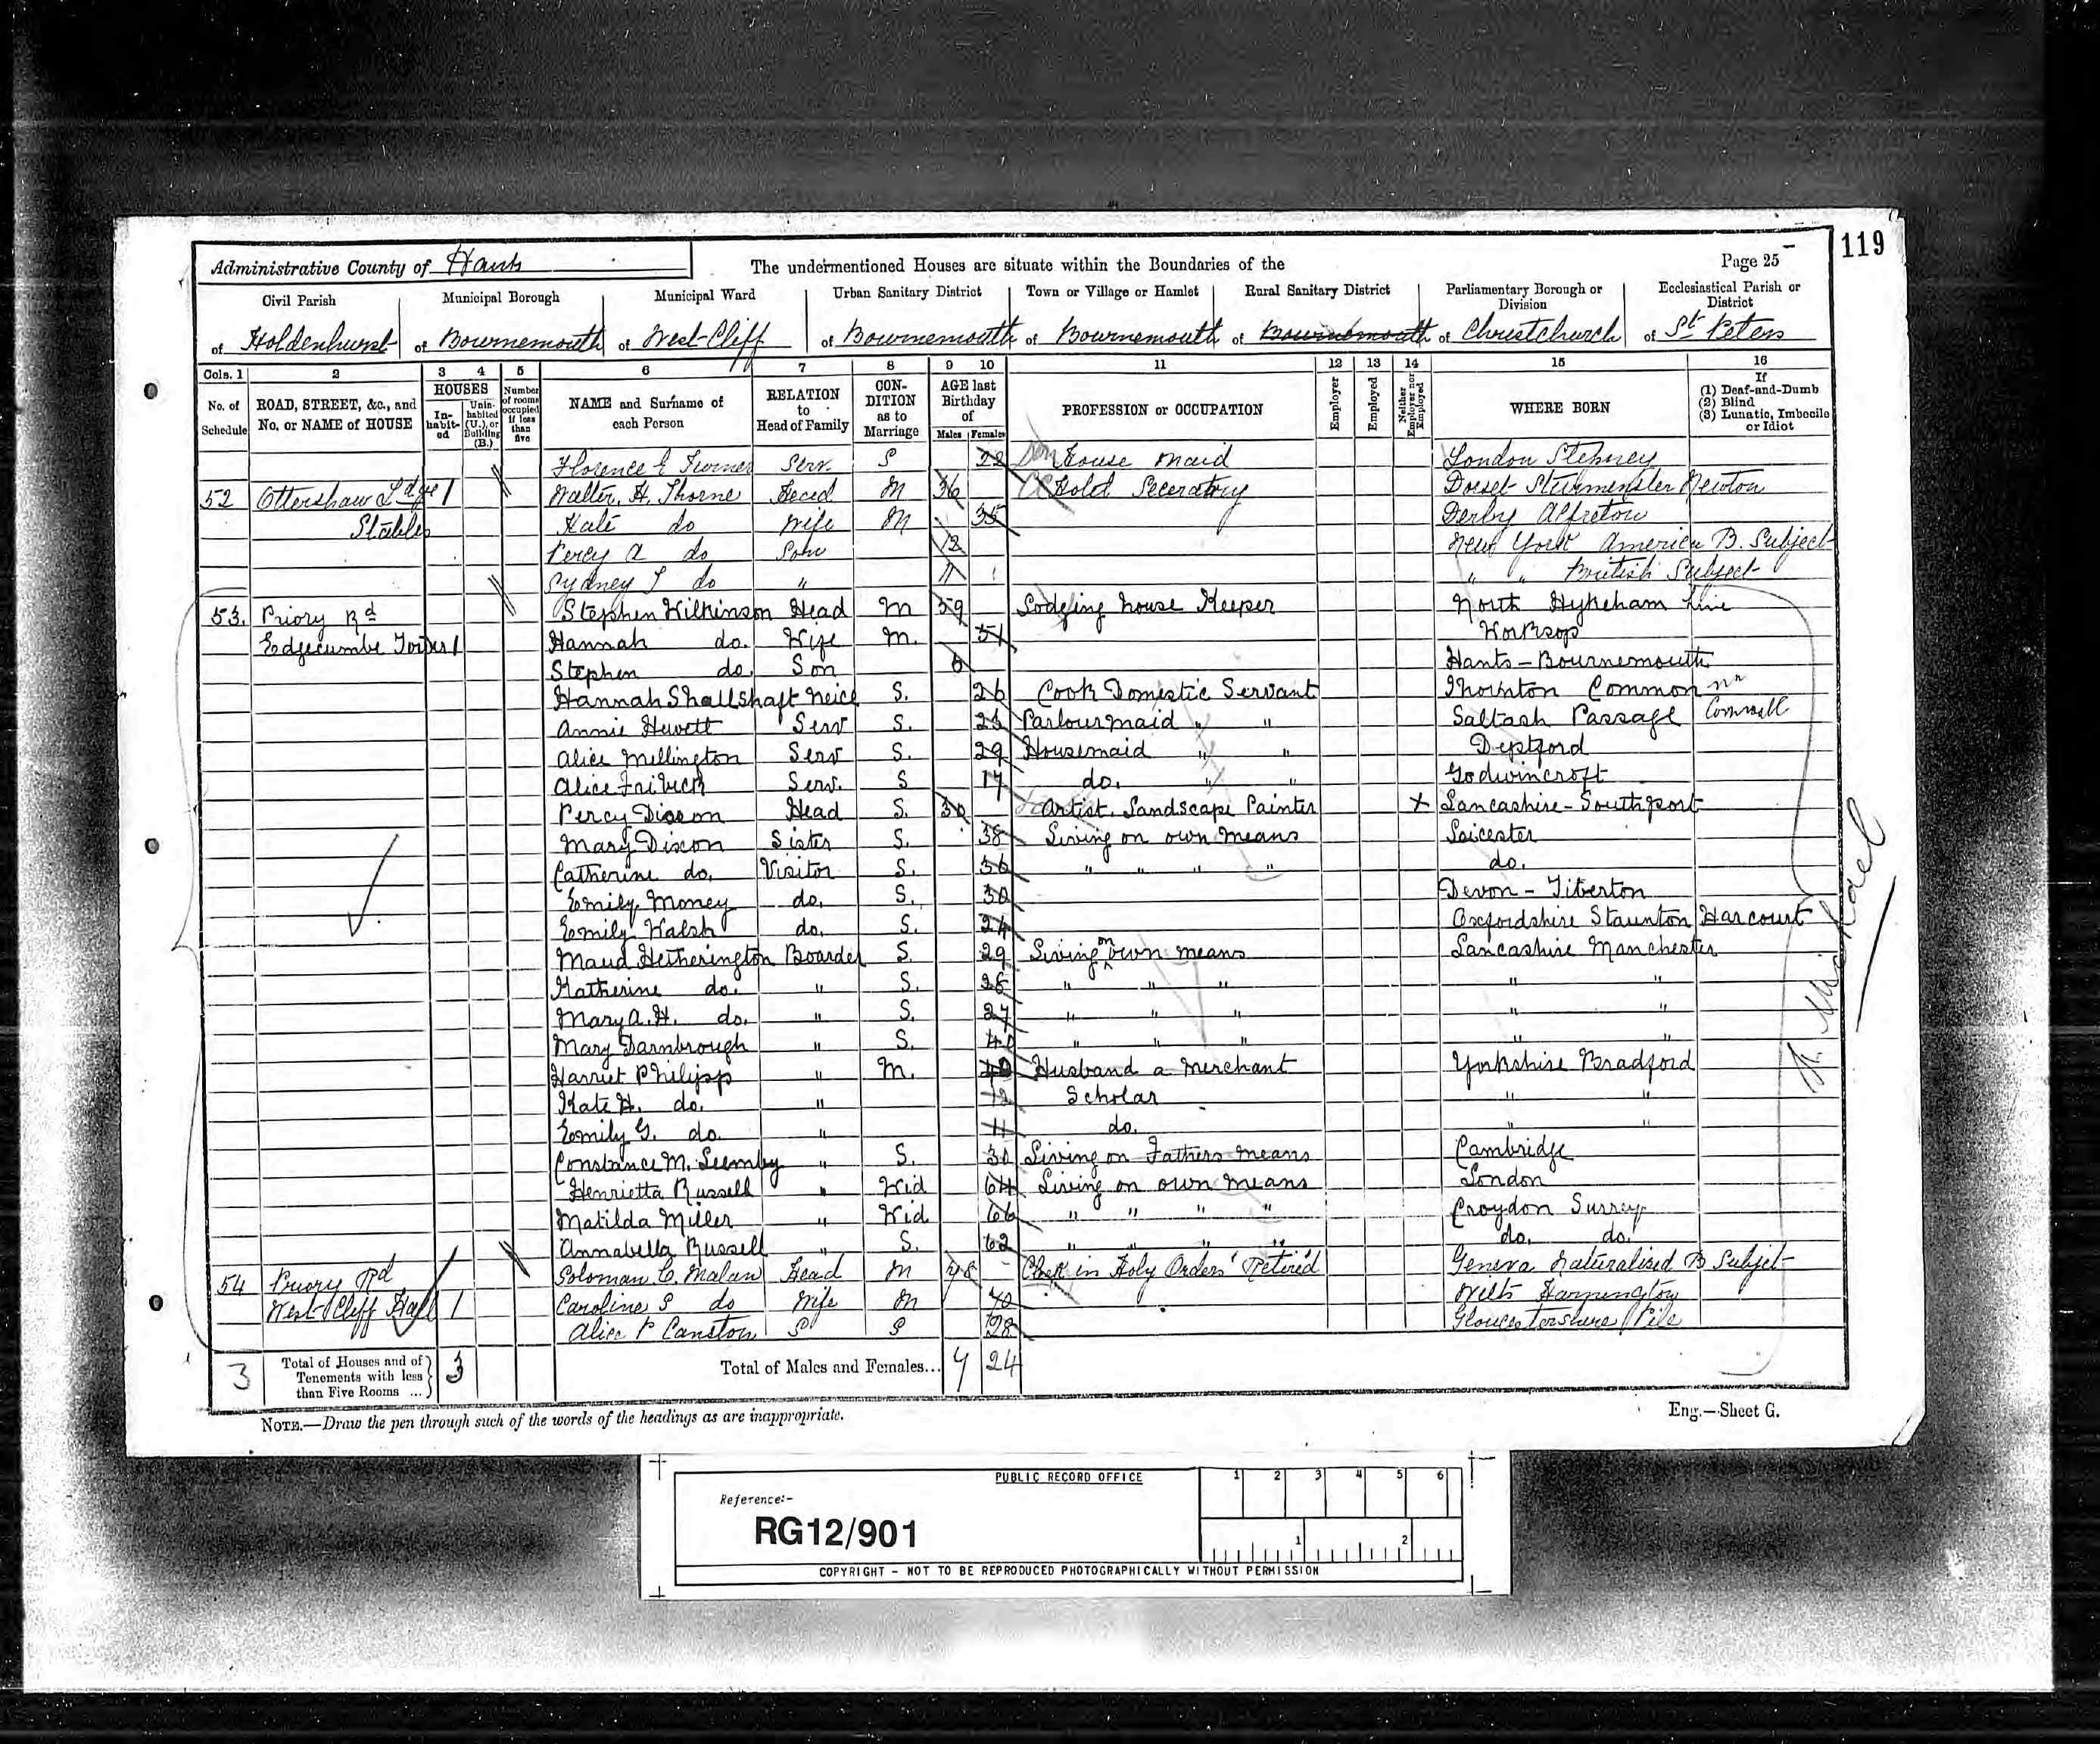 119
Administrative County of Hants The undermentioned Houses are situate within the Boundaries of the Page 25
Civil Parish Municipal Borough Municipal Ward Urban Sanitary District Town or Village or Hamlet Rural Sanitary District Parliamentary Borough or Division Ecclesiastical Parish or District
of Holdenhurst of Bournemouth of West-Cliff of Bournemouth of Bournemouth of Bournemouth of Christchurch of St Peters
Cols. 1 2 3 4 5 6 7 8 9 10 11 12 13 14 15 16
No. of Schedule ROAD, STREET, &c., and No. or NAME of HOUSE HOUSES In-habit-ed Unin-habited (U.), or Building (B.) Number of rooms occupied if less than five NAME and Surname of each Person RELATION to Head of Family CON-DITION as to Marriage AGE last Birthday of Males Females PROFESSION or OCCUPATION Employer Employed Neither Employer nor Employed WHERE BORN If (1) Deaf-and-Dumb (2) Blind (3) Lunatic, Imbecile or Idiot
Florence E Turner Serv. S 22 House Maid London Stepney
52 Ottershaw Ldge 1 Walter. H. Thorne Head M 36 Seceratory Dorset Sturminster Newton
Stables Kate do Wife M 35 Derby Alfreton
Percy A do Son 12 New York America B. Subject
Sydney do " 11 " " British Subject
53. Priory Rd Stephen Wilkinson Head M 59 Lodging house Keeper North Hykeham Line
Edgecumbe 1 Hannah do. Wife M. 51 Worksop
Stephen do. Son 6 Hants - Bournemouth
Hannah Shallshaft Neice S. 26 Cook Domestic Servant Thornton Common nr
Annie Hewett Serv S. 23 Parlourmaid " " Saltash Passage Cornwall
Alice Millington Serv S. 29 Housemaid " " Deptford
Alice Serv. S 17 do. " " Godwincroft
Percy Dixon Head S. 30 Artist. Landscape Painter X Lancashire - Southport
Mary Dixon Sister S. 38 Living on own means Leicester
Catherine do. Visitor S. 36 " " " " do.
Emily Money do. S. 30 Devon - Tiverton
Emily Walsh do. S. 24 Oxfordshire Staunton Harcourt
Maud Hetherington Boarder S. 29 Living on own means Lancashire Manchester
Katherine do. " S. 28 " " " " "
Mary A. H. do. " S. 27 " " " " "
Mary Darnbrough " S. 40 " " " " "
Harriet Philipp " M. 40 Husband a Merchant Yorkshire Bradford
Kate H. do. " 12 Scholar " "
Emily G. do. " 11 do. " "
Constance M. " S. 30 Living on Fathers means Cambridge
Henrietta Russell " Wid 64 Living on own means London
Matilda Miller " Wid 66 " " " " Croydon Surrey
Annabella Russell " S. 62 " " " " do. do.
54 Priory Rd Soloman C. Malan Head M 78 Clerk in Holy Orders Retired Geneva Naturalised B Subject
West-Cliff Hall 1 Caroline S do Wife M 70 Wilts
Alice P S S 28 Gloucestershire
3 Total of Houses and of Tenements with less than Five Rooms ... 3 Total of Males and Females... 7 24
NOTE.—Draw the pen through such of the words of the headings as are inappropriate. Eng.—Sheet G.
PUBLIC RECORD OFFICE 1 2 3 4 5 6
Reference:-
RG12/901
1 2
COPYRIGHT - NOT TO BE REPRODUCED PHOTOGRAPHICALLY WITHOUT PERMISSION